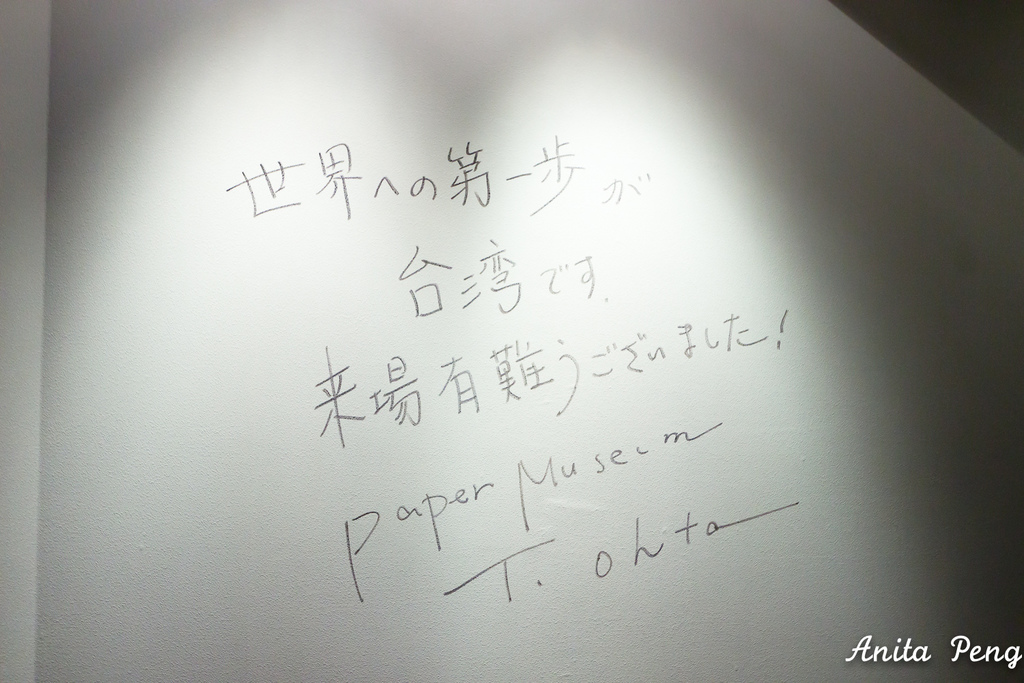 世界への第一歩が
台湾です.
来場有難うございました!
Paper Museum
T. ohta
Anita Peng